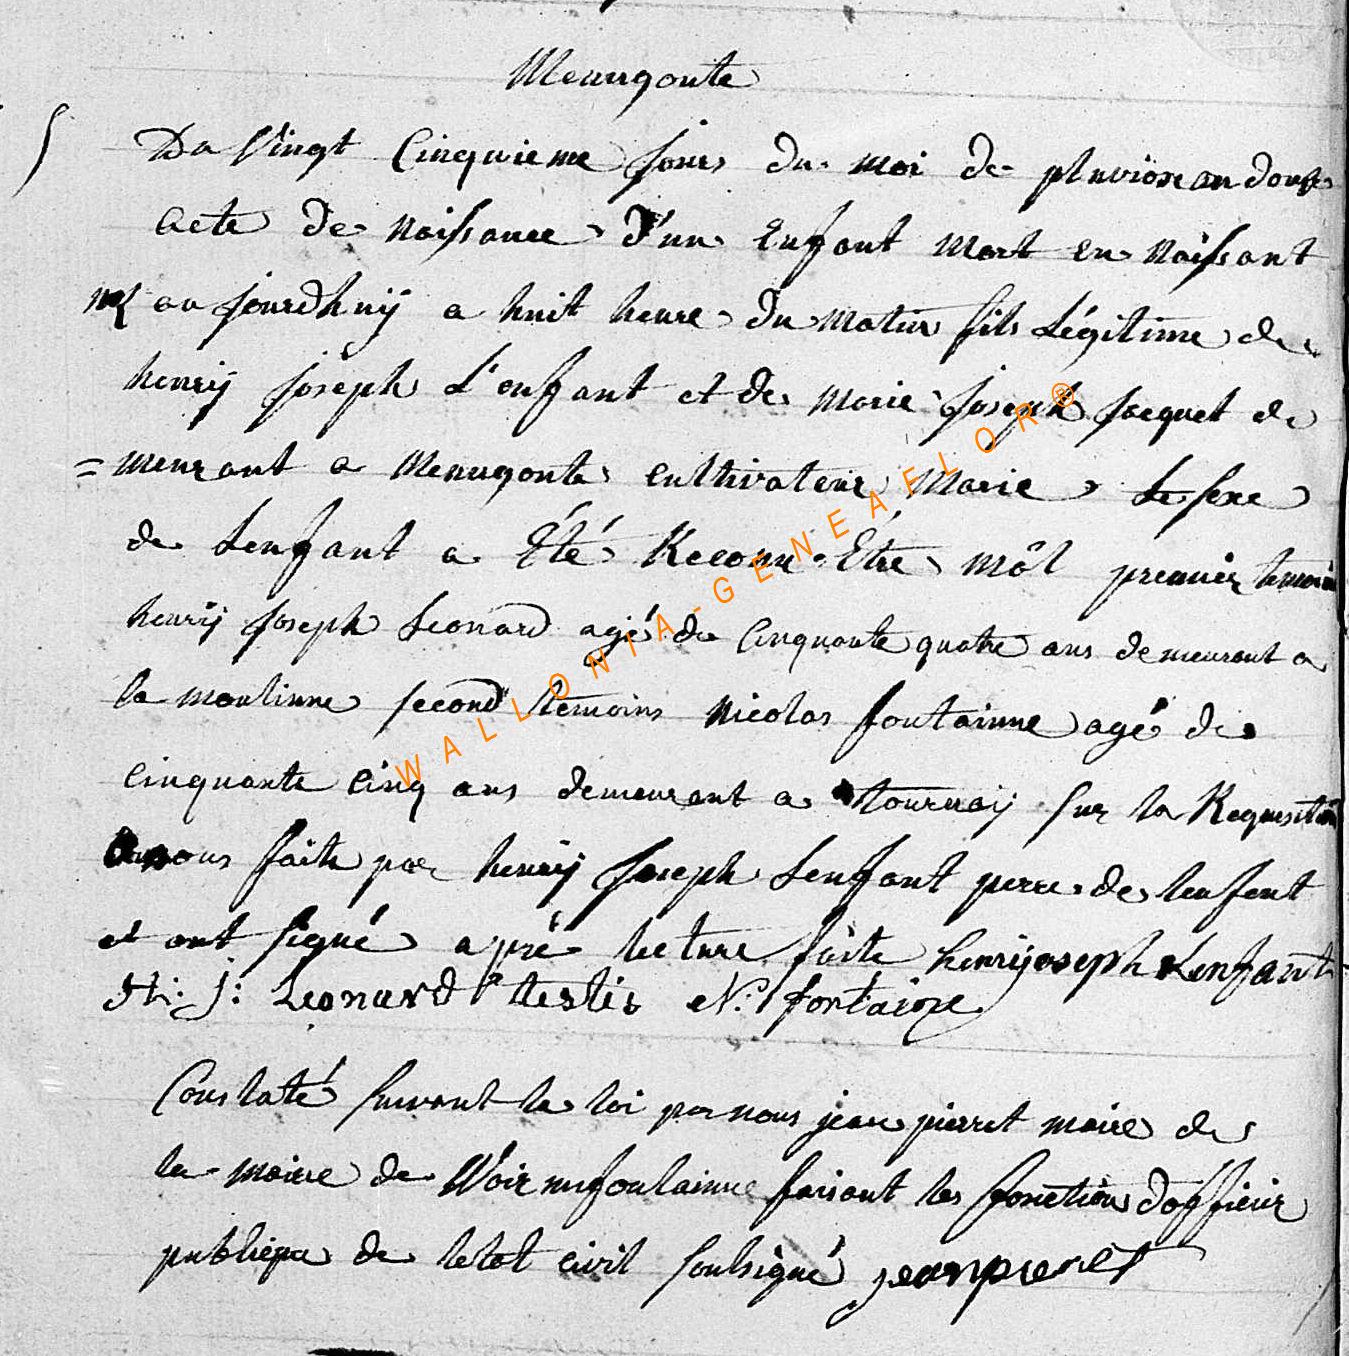 Menugoute
Du Vingt Cinquieme jour du moi de pluviose an douse
acte de Naissance d'un Enfant mort en Naissant
né au jourdhuÿ a huit heure du matin fils Légitime de
henrÿ joseph L'enfant et de Marie joseph jacquet de
=meurant a Menugoute cultivateur Marié Le sexe
de Lenfant a Été Reconu Être mâl premier temoin
henrÿ joseph Leonard agé de Cinquante quatre ans demeurant a
la moulinne second temoins Nicolas fontainne agé de
cinquante cinq ans demeurant a tournaÿ sur la Requisition
a nous faite par henrÿ Joseph Lenfant perre de lenfent
et ont signé apré lecture faite henrijoseph Lenfant
H: J: Leonard testis N: fontaine
Constaté suivant la loi par nous jean pierret maire de
la mairie de Noirmfontainne faisant les fonction d'officier
publique de letat civil soulsigné jeanpieret
WALLONIA-GENEAFLOR®